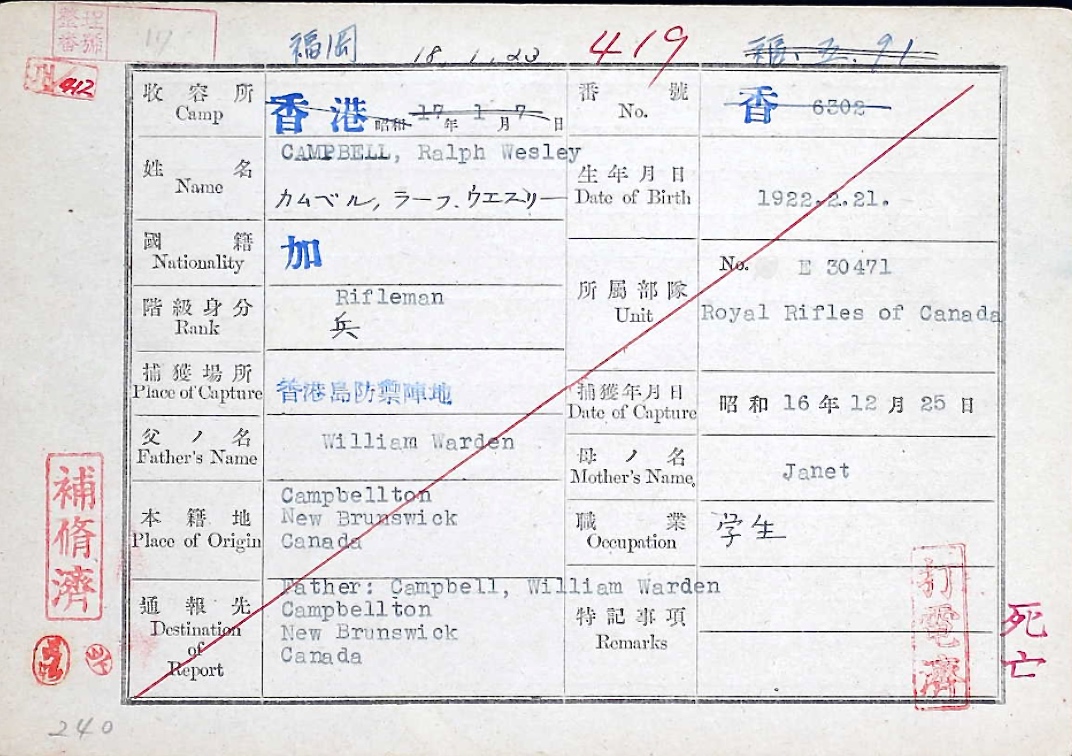 整理
番號
17
福岡 18.1.23 419 福.五.91
収容所
Camp
香港 昭和17年1月7日
番號
No.
香 6302
姓名
Name
CAMPBELL, Ralph Wesley
カムベル, ラーフ.ウエスリー
生年月日
Date of Birth
1922.2.21.
國籍
Nationality
加
階級身分
Rank
Rifleman
兵
所屬部隊
Unit
No. E 30471
Royal Rifles of Canada
捕獲場所
Place of Capture
香港島防禦陣地
捕獲年月日
Date of Capture
昭和16年12月25日
父ノ名
Father's Name
William Warden
母ノ名
Mother's Name
Janet
本籍地
Place of Origin
Campbellton
New Brunswick
Canada
職業
Occupation
学生
通報先
Destination
of
Report
Father: Campbell, William Warden
Campbellton
New Brunswick
Canada
特記事項
Remarks
補脩濟
打電濟
死亡
240